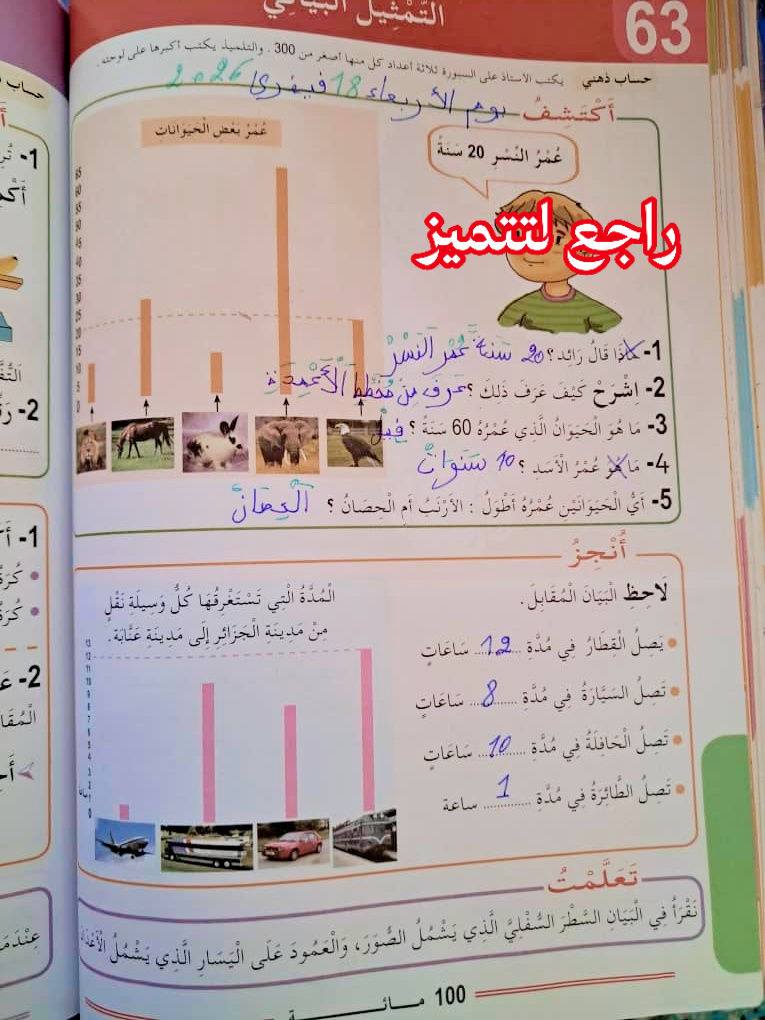 63
التَّمْثِيلُ الْبَيَانِي
حساب ذهني يكتب الأستاذ على السبورة ثلاثة أعداد كل منها أصغر من 300 . والتلميذ يكتب أكبرها على لوحته .
يوم الأربعاء 18 فيفري 2026
أَكْتَشِفُ
عُمْرُ بَعْضِ الْحَيَوَانَاتِ
عُمْرُ النَّسْرِ 20 سَنَةً
راجع لتتميز
1- مَاذَا قَالَ رَائِد؟ 20 سنة عُمْر النَسْر
2- اِشْرَحْ كَيْفَ عَرَفَ ذَلِكَ ؟ عرف من مُخطّط الْأَعْمِدَة
3- مَا هُوَ الْحَيَوَانُ الَّذِي عُمْرُهُ 60 سَنَةً ؟ فِيل
4- مَا هُوَ عُمْرُ الْأَسَدِ ؟ 10 سنوات
5- أَيُّ الْحَيَوَانَيْنِ عُمْرُهُ أَطْوَلُ : الأَرْنَبُ أَمِ الْحِصَانُ ؟ الْحِصَان
65
60
55
50
45
40
35
30
25
20
15
10
5
0
أُنْجِزُ
لَاحِظِ الْبَيَانَ الْمُقَابِلَ.
الْمُدَّةُ الَّتِي تَسْتَغْرِقُهَا كُلُّ وَسِيلَةِ نَقْلٍ
مِنْ مَدِينَةِ الْجَزَائِرِ إِلَى مَدِينَةِ عَنَّابَة.
• يَصِلُ الْقِطَارُ فِي مُدَّةِ ...12... سَاعَاتٍ
• تَصِلُ السَيَّارَةُ فِي مُدَّةِ ...8... سَاعَاتٍ
• تَصِلُ الْحَافِلَةُ فِي مُدَّةِ ...10... سَاعَاتٍ
• تَصِلُ الطَّائِرَةُ فِي مُدَّةِ ...1... ساعة
13
12
11
10
9
8
7
6
5
4
3
2
1
0
تَعَلَّمْتُ
نَقْرَأُ فِي الْبَيَانِ السَّطْرَ السُّفْلِيَّ الَّذِي يَشْمُلُ الصُّوَرَ، وَالْعَمُودَ عَلَى الْيَسَارِ الَّذِي يَشْمُلُ
100 مـائـــة
حساب ذهني
1-
2-
1-
2-